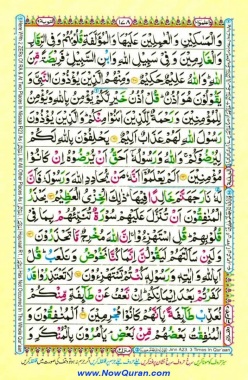 وَالْمَسٰكِيْنِ وَالْعٰمِلِيْنَ عَلَيْهَا وَالْمُؤَلَّفَةِ قُلُوْبُهُمْ وَفِى الرِّقَابِ
وَالْغٰرِمِيْنَ وَفِىْ سَبِيْلِ اللّٰهِ وَابْنِ السَّبِيْلِ فَرِيْضَةً مِّنَ
اللّٰهِ وَاللّٰهُ عَلِيْمٌ حَكِيْمٌ وَمِنْهُمُ الَّذِيْنَ يُؤْذُوْنَ النَّبِىَّ وَ
يَقُوْلُوْنَ هُوَ اُذُنٌ قُلْ اُذُنُ خَيْرٍ لَّكُمْ يُؤْمِنُ بِاللّٰهِ وَيُؤْمِنُ
لِلْمُؤْمِنِيْنَ وَرَحْمَةٌ لِّلَّذِيْنَ اٰمَنُوْا مِنْكُمْ وَالَّذِيْنَ يُؤْذُوْنَ
رَسُوْلَ اللّٰهِ لَهُمْ عَذَابٌ اَلِيْمٌ يَحْلِفُوْنَ بِاللّٰهِ لَكُمْ
لِيُرْضُوْكُمْ وَاللّٰهُ وَرَسُوْلُهٗ اَحَقُّ اَنْ يُّرْضُوْهُ اِنْ كَانُوْا
مُؤْمِنِيْنَ اَلَمْ يَعْلَمُوْا اَنَّهٗ مَنْ يُّحَادِدِ اللّٰهَ وَرَسُوْلَهٗ فَاَنَّ
لَهٗ نَارَ جَهَنَّمَ خَالِدًا فِيْهَا ذٰلِكَ الْخِزْىُ الْعَظِيْمُ يَحْذَرُ
الْمُنٰفِقُوْنَ اَنْ تُنَزَّلَ عَلَيْهِمْ سُوْرَةٌ تُنَبِّئُهُمْ بِمَا فِىْ
قُلُوْبِهِمْ قُلِ اسْتَهْزِءُوْا اِنَّ اللّٰهَ مُخْرِجٌ مَّا تَحْذَرُوْنَ
وَلَئِنْ سَاَلْتَهُمْ لَيَقُوْلُنَّ اِنَّمَا كُنَّا نَخُوْضُ وَنَلْعَبُ قُلْ
اَبِاللّٰهِ وَاٰيٰتِهٖ وَرَسُوْلِهٖ كُنْتُمْ تَسْتَهْزِءُوْنَ لَا تَعْتَذِرُوْا قَدْ
كَفَرْتُمْ بَعْدَ اِيْمَانِكُمْ اِنْ نَّعْفُ عَنْ طَآئِفَةٍ مِّنْكُمْ
نُعَذِّبْ طَآئِفَةً بِاَنَّهُمْ كَانُوْا مُجْرِمِيْنَ اَلْمُنٰفِقُوْنَ وَ
الْمُنٰفِقٰتُ بَعْضُهُمْ مِّنْ بَعْضٍ يَاْمُرُوْنَ بِالْمُنْكَرِ وَ
www.NowQuran.com